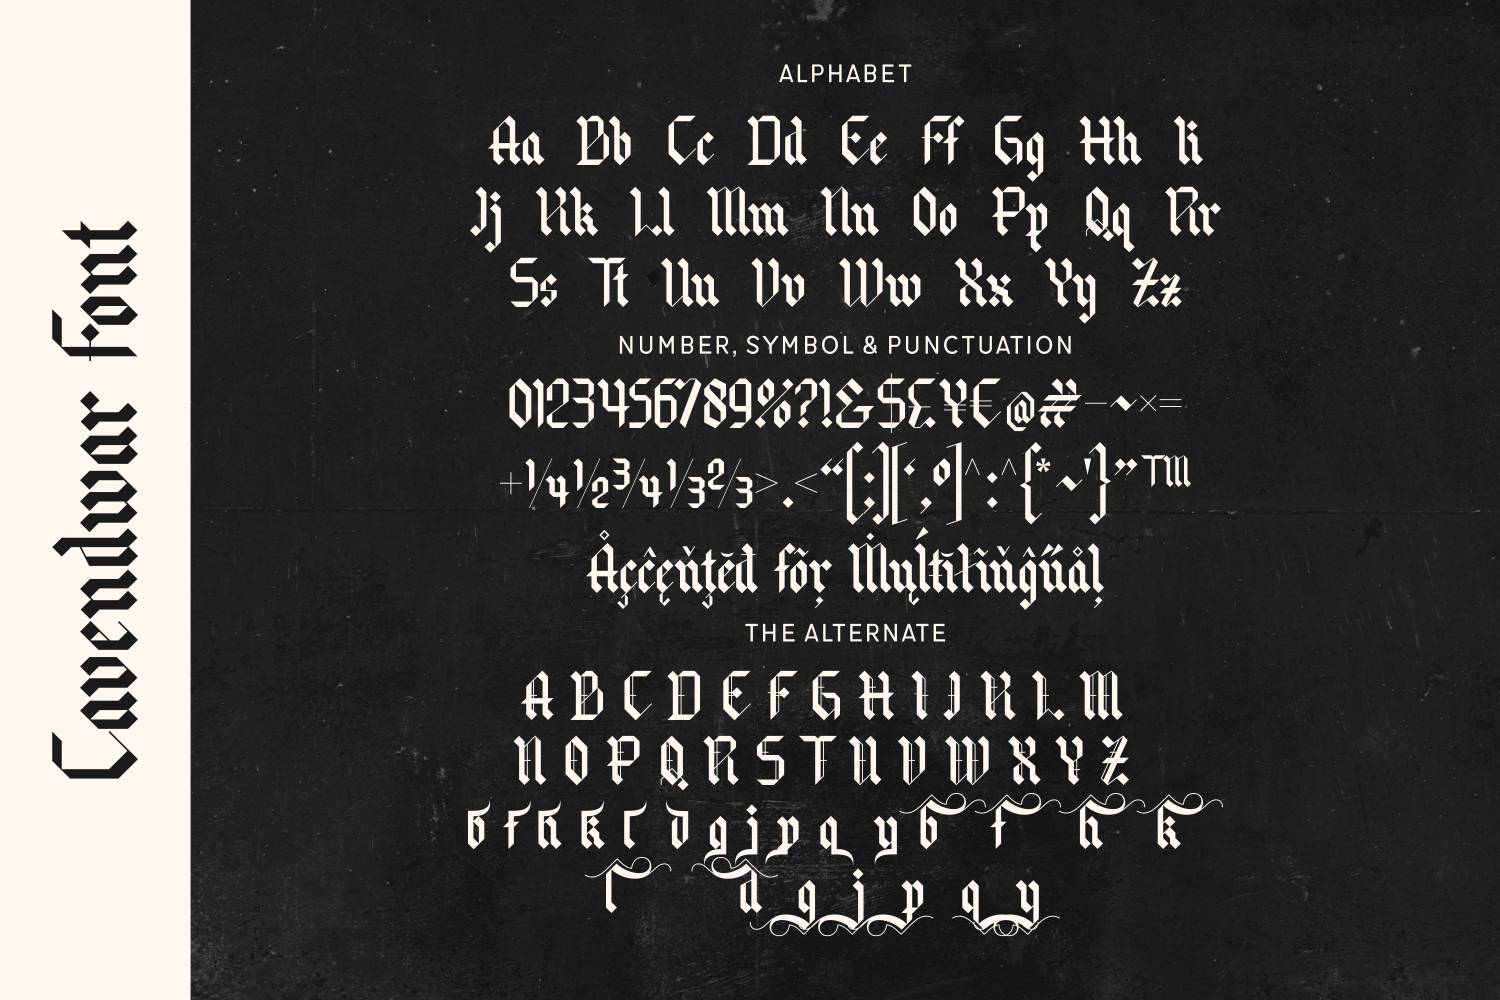 Cavendwar Font
ALPHABET
Aa Bb Cc Dd Ee Ff Gg Hh Ii
Jj Kk Ll Mm Nn Oo Pp Qq Rr
Ss Tt Uu Vv Ww Xx Yy Zz
NUMBER, SYMBOL & PUNCTUATION
0123456789%?!&$£¥€@#–~×=
+¼½¾⅓⅔>.<“(;)[‘,º]^:^{*~'}”™
Åçčęňţěđ fõŗ Ṁųĺťīłıňğűåļ
THE ALTERNATE
A B C D E F G H I J K L M
N O P Q R S T U V W X Y Z
b f h k l d g j p q y b f h k
l d g j p q y